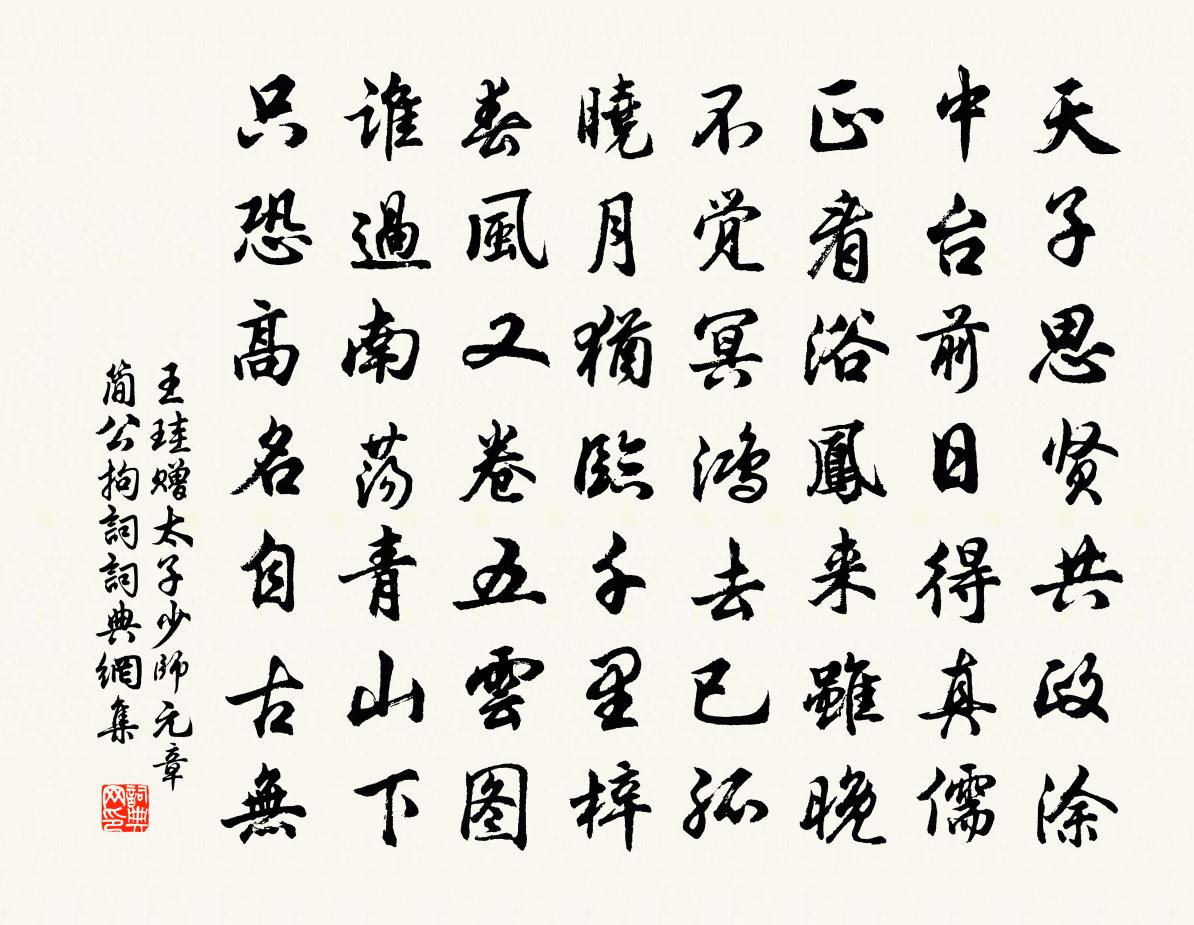 天子思贤共政涂
中台前日得真儒
正看浴鳳来雖晚
不覚冥鸿去已孤
曉月猶臨千里梓
春風又卷五雲图
谁過南荡青山下
只恐髙名自古無
王珪赠太子少師元章
简公拘詞詞典網集
詞典网印